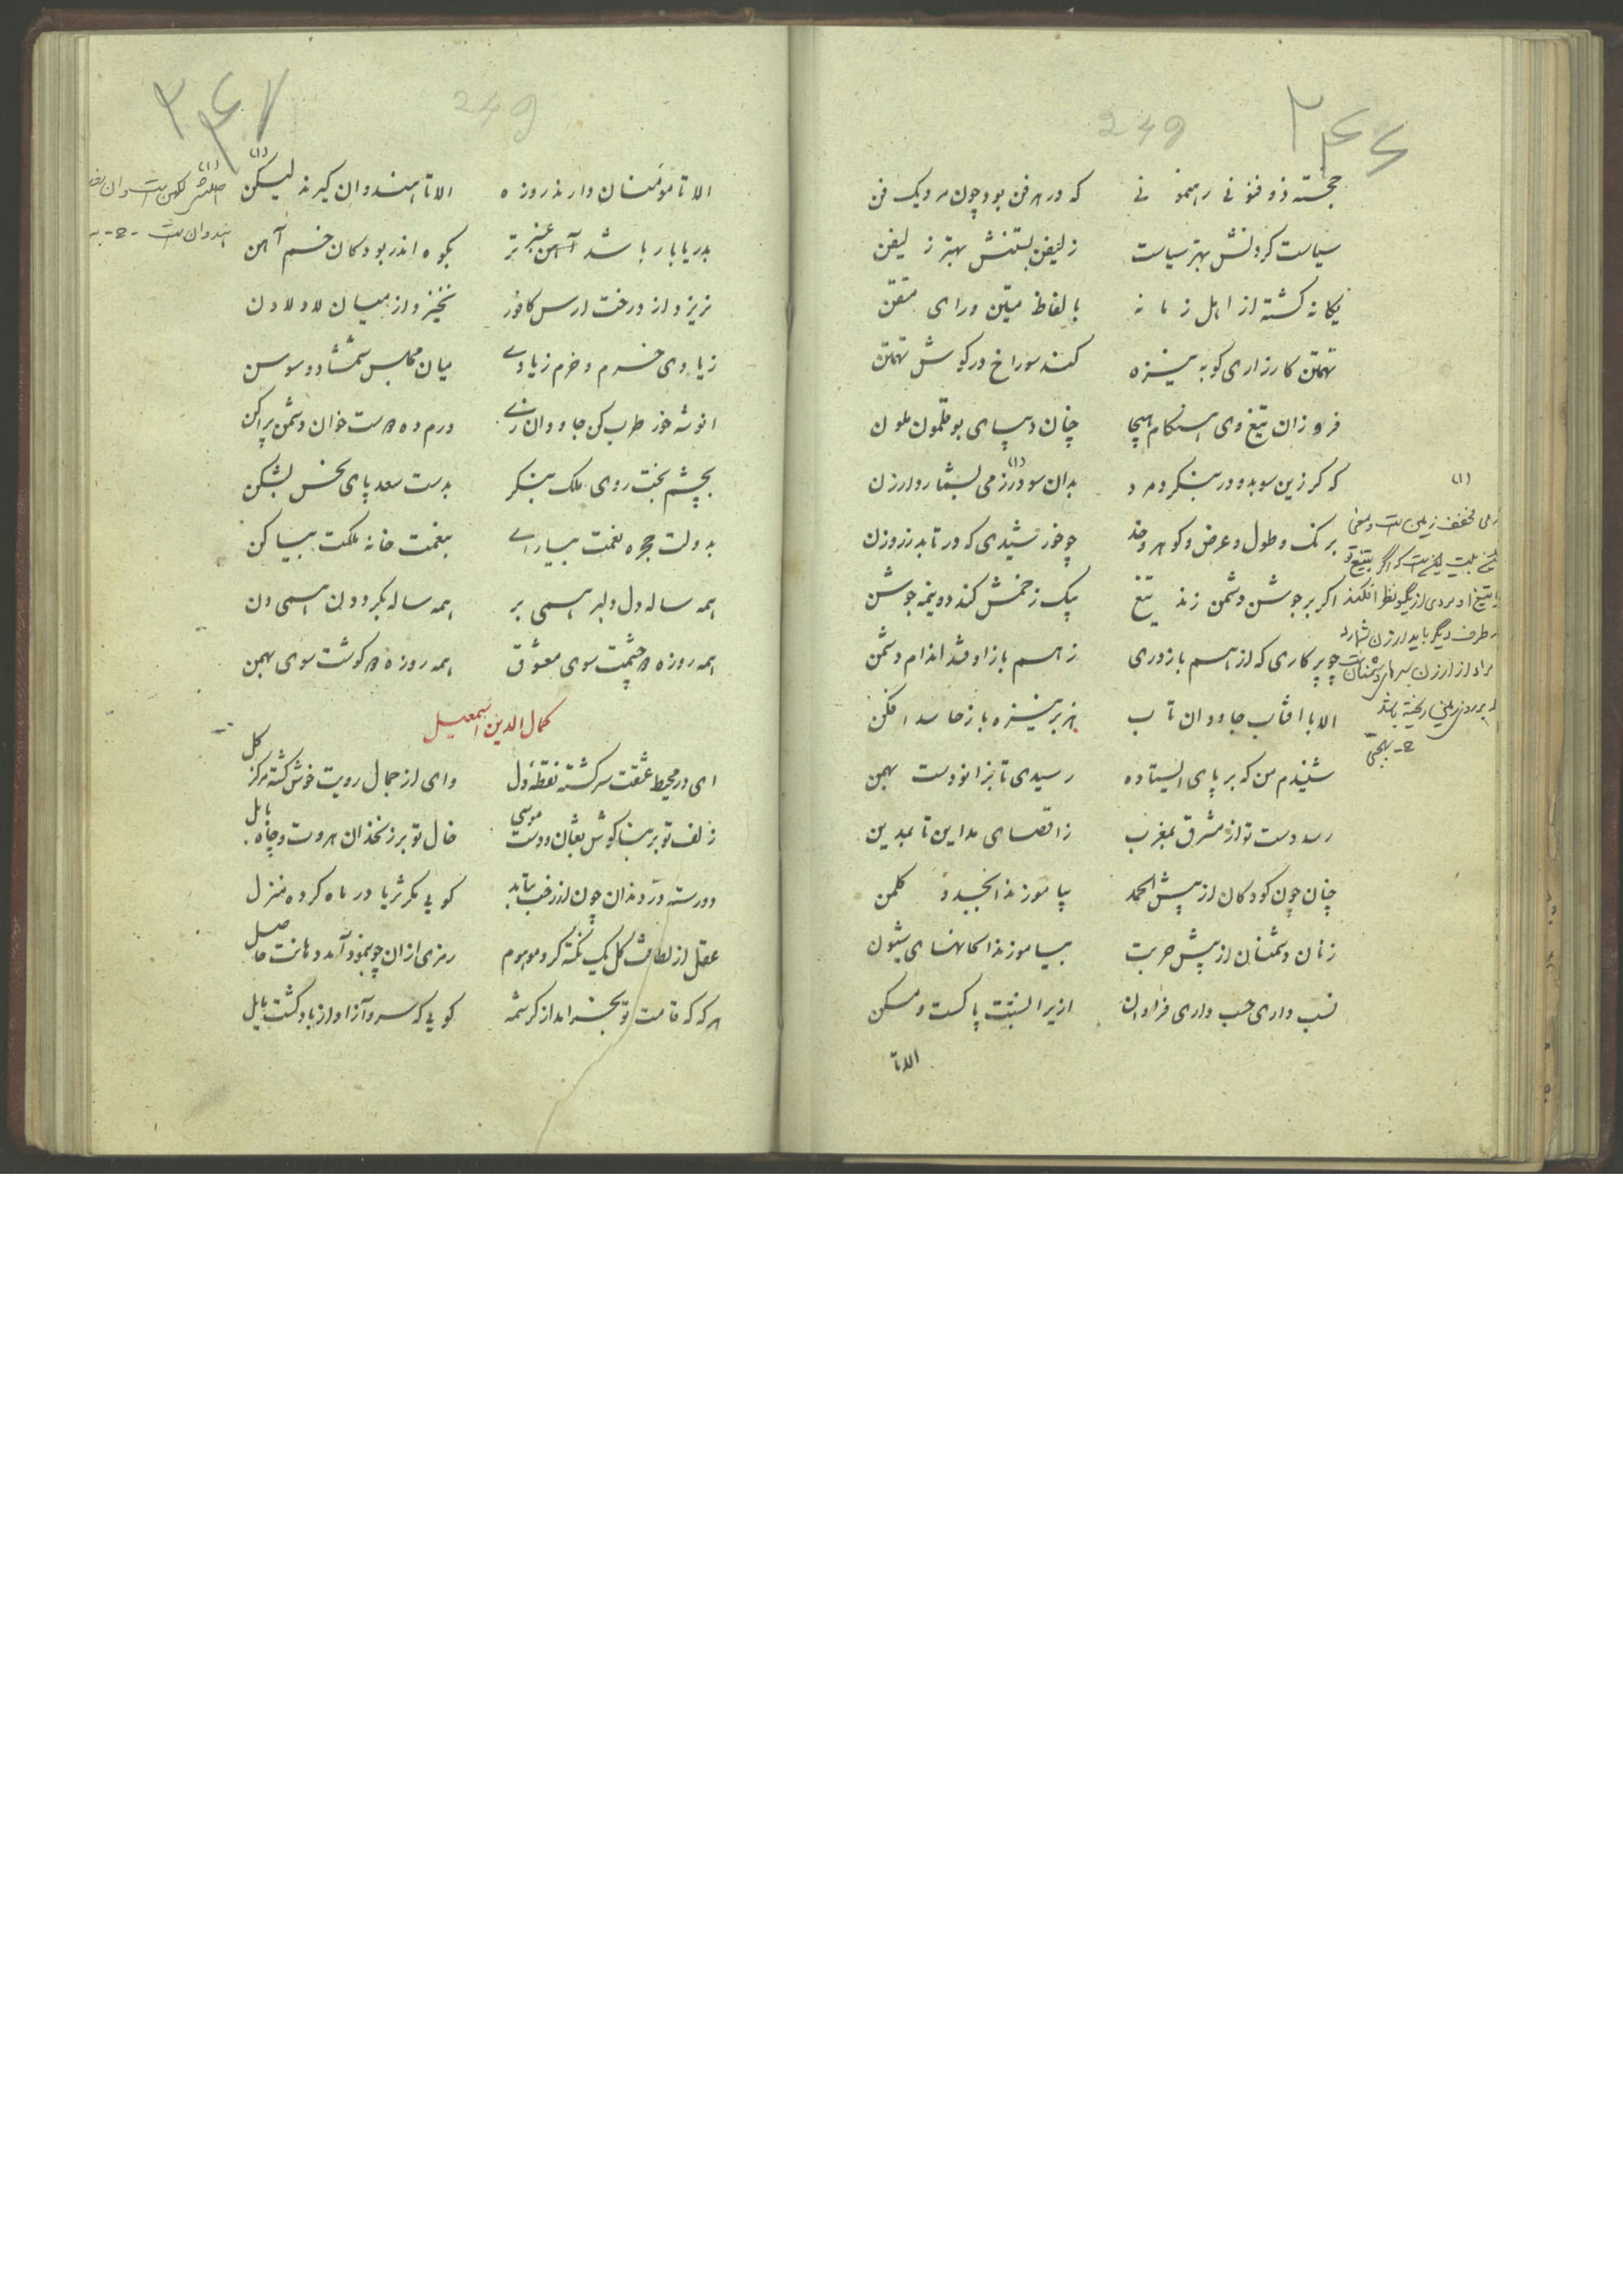 ۲۴۶
249
خجسته ذو فنونی رهنمونی که در هر فن بود چون مرد یک فن
سیاست کردنش بهتر سیاست زلیفن بستنش بهتر ز لیفن
یگانه کشته از اهل زمانه بالفاظ متین و رای متقن
تهمتن کارزاری کو به نیزه کند سوراخ در کوش تهمتن
فروزان تیغ وی هنکام هیجا چنان دیبای بوقلمون ملون
که کر زین سو بدو در بنکرد مرد بدان سو در زمی بشمارد ارزن
برنک و طول و عرض و کوهر و خد چو خورشیدی که در تابد ز روزن
اکر بر جوشن دشمن زند تیغ بیک زخمش کند دو نیمه جوشن
چو پرکاری که از هم باز دری ز هم باز اوفتد اندام دشمن
الا یا افتاب جاودان تاب هنر بر نیزه باز حاسد افکن
شنیدم من که بر پای ایستاده رسیدی تا بزانو دست بهمن
رسد دست تو از مشرق بمغرب ز اقصای مداین تا بمدین
چنان چون کودکان از پیش الحمد بیاموزند ابجد و کلمن
زنان دشمنان از پیش حربت بیاموزند الحانهای شیون
نسب داری حسب داری فراوان ازیرا نسبتت پاکست و مسکن
الا تا
(۱)
زمی مخفف زمین است و معنی
مراد از ارزن سرهای دشمنان است
۲۴۷
249
الا تا مؤمنان دارند روزه الا تا هندوان کیرند لیکن
بدریا بار باشد عنبر تر بکوه اندر بود کان خم آهن
نریزد از درخت ارس کافور نخیزد از میان لاد لادن
زیادی خرم و خرم زیادی میان مجلس شمشاد و سوسن
انوشه خور طرب کن جاودان زی درم ده دوست خوان دشمن پراکن
بچشم بخت روی ملک بنکر بدست سعد پای نحس بشکن
بدولت حجره نعمت بیارای بنعمت خانه ملکت بیاکن
همه ساله دل دلبر همی بر همه ساله بکرد دن همی دن
همه روزه دو چشمت سوی معشوق همه روزه دو کوشت سوی بهمن
کمال الدین اسمعیل
ای در محیط عشقت سرکشته نقطه دل وای از جمال رویت خوش کشته مرکز کل
زلف تو بر بناکوش ثعبان و دست موسی خال تو بر زنخدان هروت و چاه بابل
دو رسته در دندان چون از رخت بتابد کویی مکر ثریا در ماه کرده منزل
عقل از لطافت کل یک نکته کرد موهوم رمزی از ان چو بنمود آمد دهانت حاصل
هرکه که قامت تو بخرامد از کرشمه کویی که سرو آزاد از باد کشت مایل